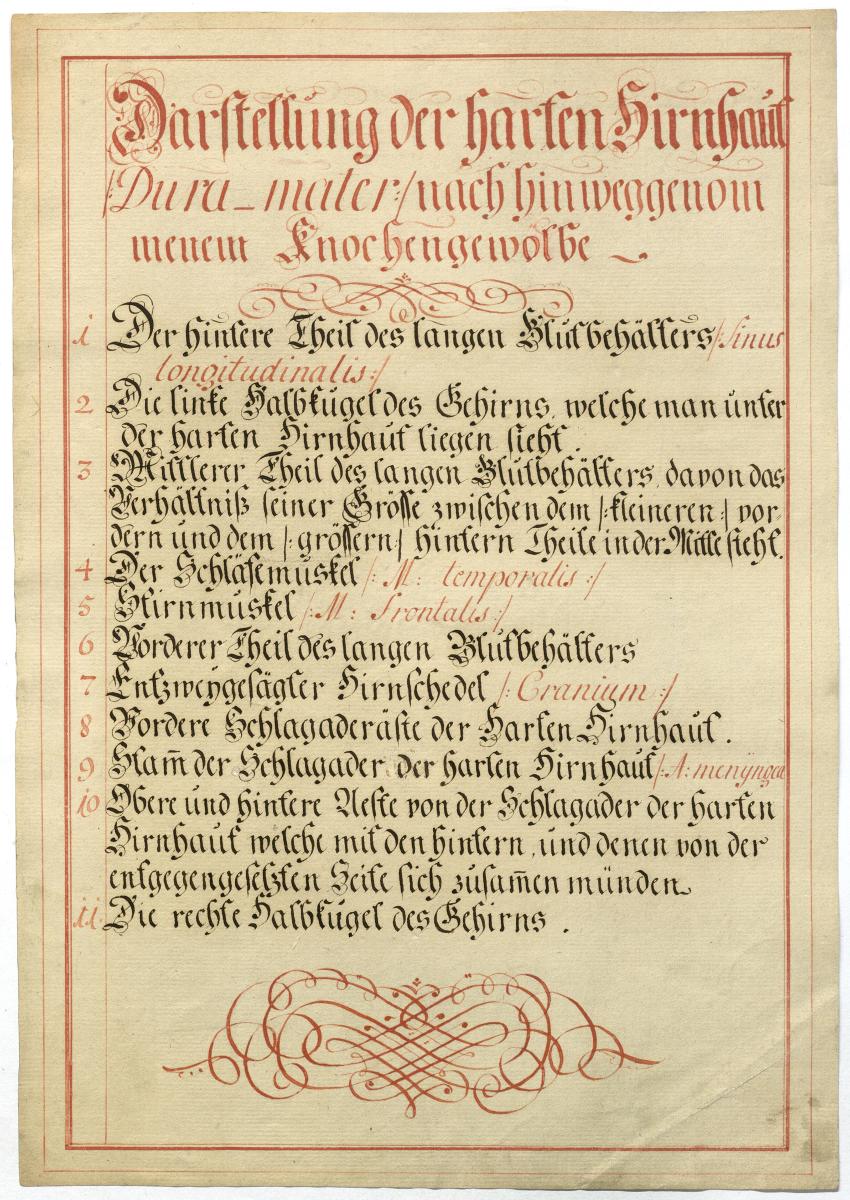 Darstellung der harten Hirnhaut
/: Dura_mater :/ nach hinweggenom
menem Knochengewölbe
1 Der hintere Theil des langen Blutbehälters /: Sinus
longitudinalis :/
2 Die linke Halbkugel des Gehirns, welche man unter
der harten Hirnhaut liegen sieht.
3 Mittlerer Theil des langen Blutbehälters, davon das
Verhältniß seiner Grösse zwischen dem /: kleineren :/ vor-
dern und dem /: grössern :/ hintern Theile in der Mitte sieht.
4 Der Schläfemuskel /: M: temporalis :/
5 Stirnmuskel /: M: frontalis :/
6 Vorderer Theil des langen Blutbehälters
7 Entzweygesägter Hirnschedel /: Cranium :/
8 Vordere Schlagaderäste der Harten Hirnhaut.
9 Stam̅ der Schlagader, der harten Hirnhaut /: A: menyngea
10 Obere und hintere Aeste von der Schlagader der harten
Hirnhaut welche mit den hintern, und denen von der
entgegengesetzten Seite sich zusam̅en münden
11. Die rechte Halbkugel des Gehirns.